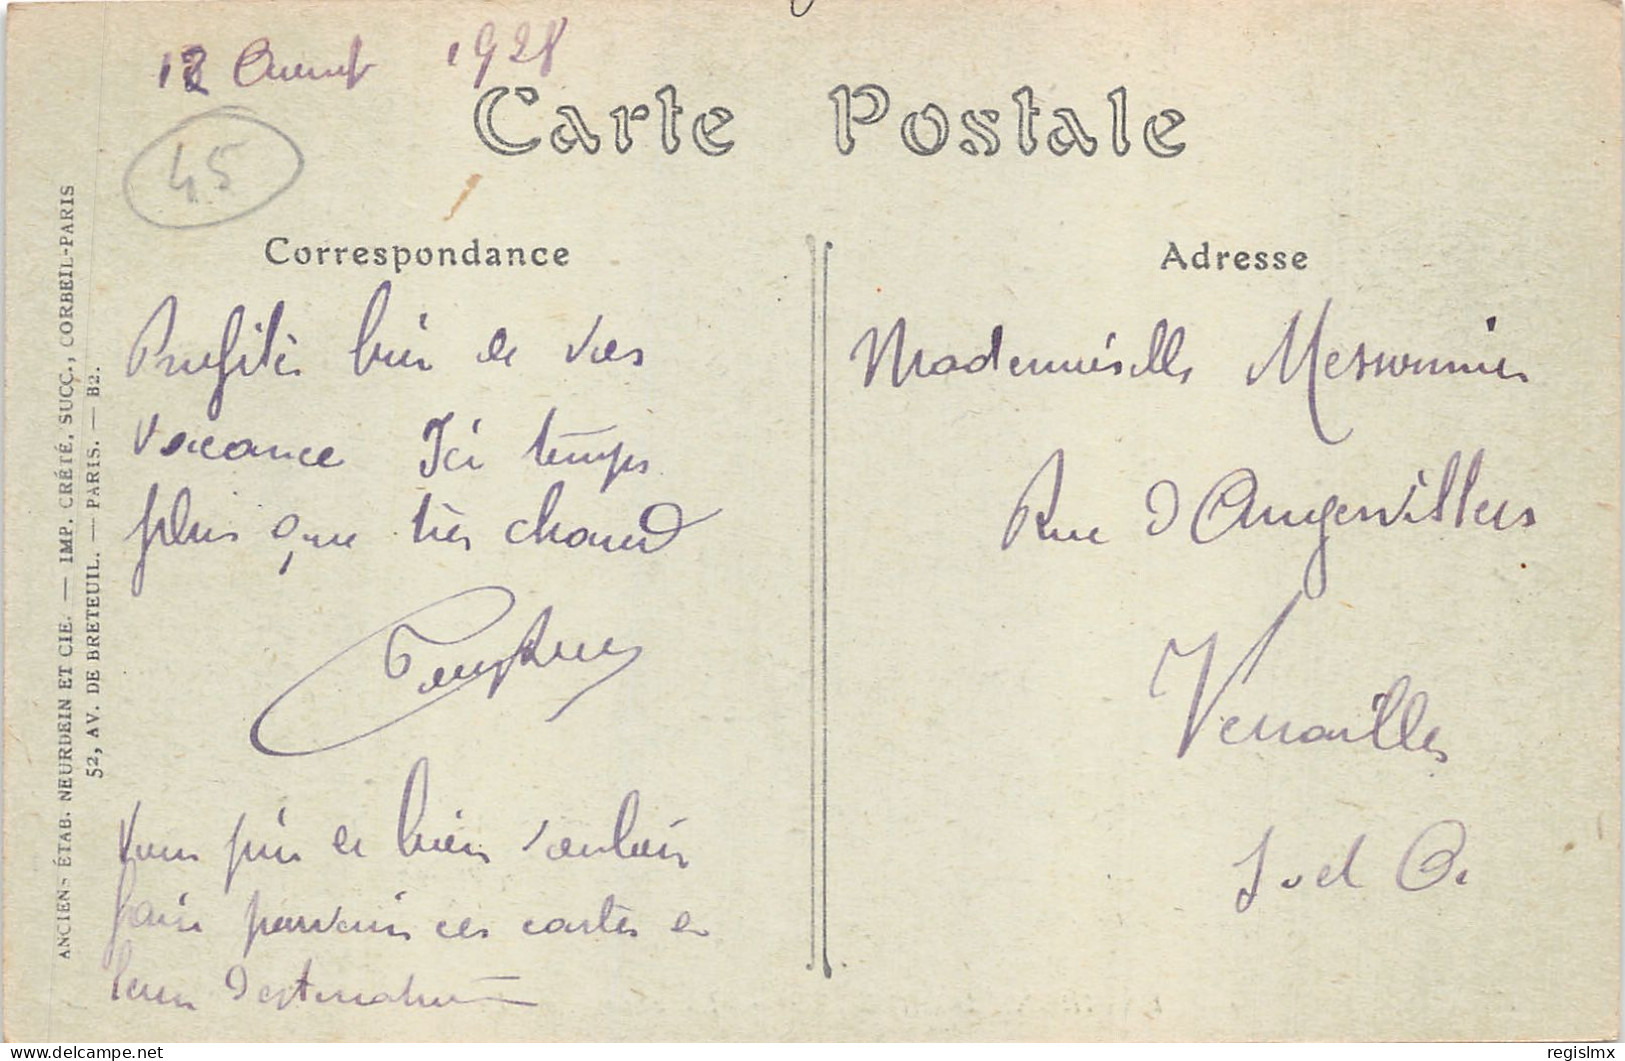 1928
Carte Postale
45
Correspondance
Adresse
Profités bien de vos
vaccance Ici temps
plus que très chaud
Vous prie de bien vouloir
faire parvenir ces cartes a
leur destination
Mademoiselle
Rue d'Angervilliers
Versailles
S et O.
ANCIENS ÉTAB. NEURDEIN ET CIE. — IMP. CRÉTÉ, SUCC., CORBEIL-PARIS
52, AV. DE BRETEUIL. — PARIS. — B2.
regislmx